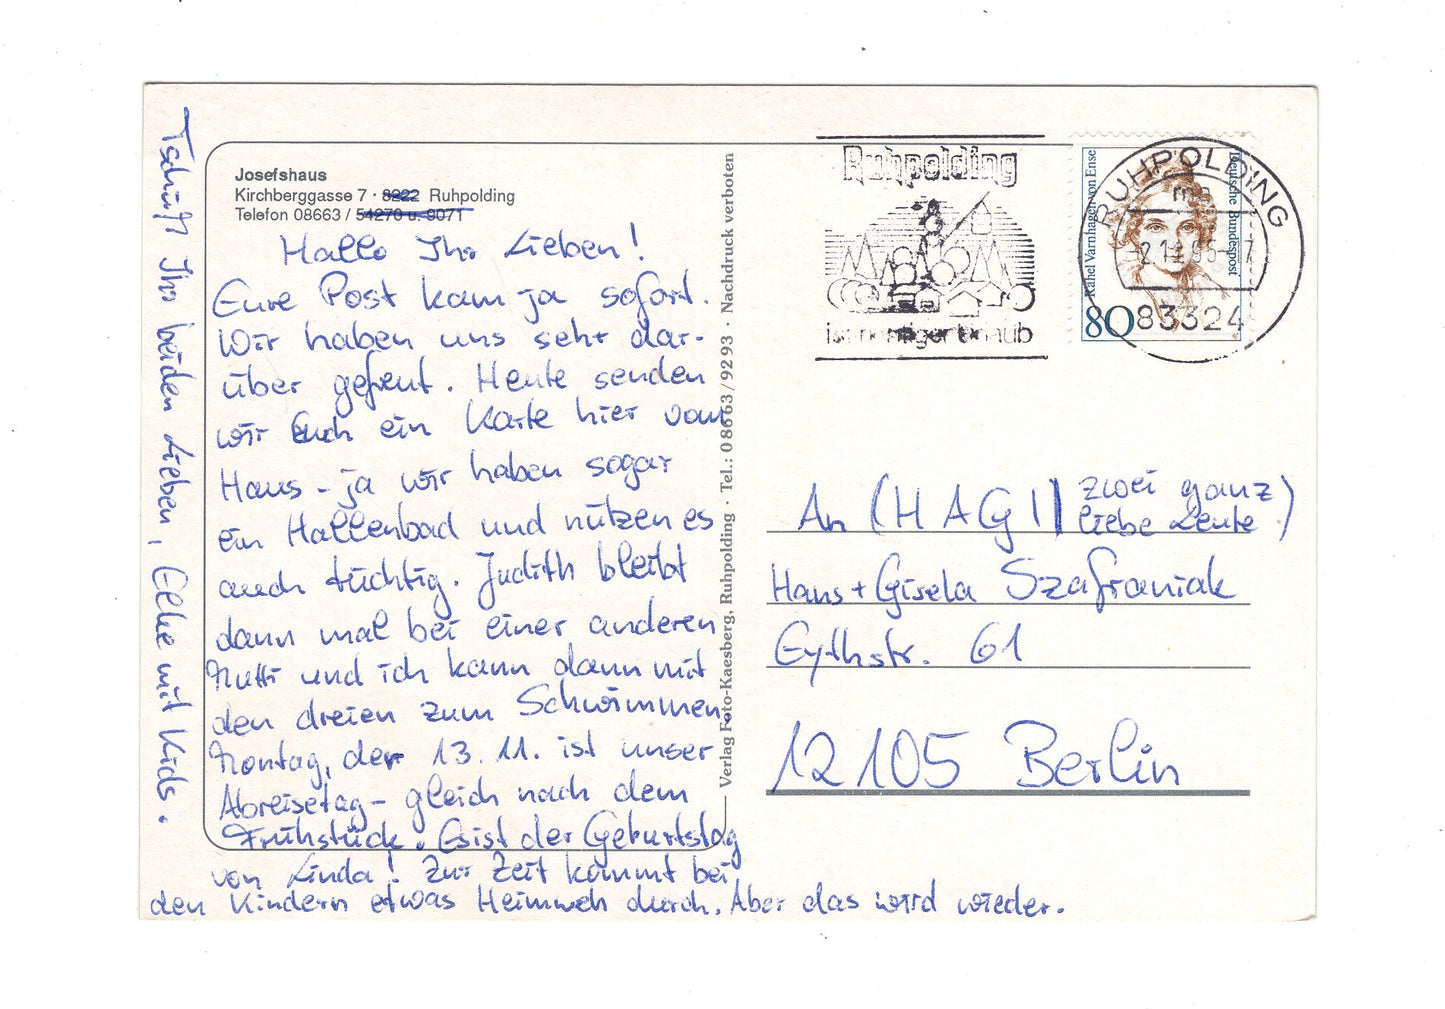 Josefshaus
Kirchberggasse 7 · 8222 Ruhpolding
Telefon 08663 / 54270 u. 9071
Hallo Ihr Lieben!
Eure Post kam ja sofort.
Wir haben uns sehr dar-
über gefreut. Heute senden
wir Euch ein Karte hier vom
Haus - ja wir haben sogar
ein Hallenbad und nützen es
auch tüchtig. Judith bleibt
dann mal bei einer anderen
Mutti und ich kann dann mit
den dreien zum Schwimmen.
Montag, der 13.11. ist unser
Abreisetag - gleich nach dem
Frühstück. Es ist der Geburtstag
von Linda! Zur Zeit kommt bei
den Kindern etwas Heimweh durch. Aber das wird wieder.
Tschüß Ihr beiden Lieben, Elke mit Kids.
Verlag Foto-Kaesberg, Ruhpolding · Tel.: 08663/9293 · Nachdruck verboten
Ruhpolding
Urlaub
RUHPOLDING
83324
Rahel Varnhagen von Ense
Deutsche Bundespost
80
An (HAGI) zwei ganz
liebe Leute)
Hans + Gisela Szafraniak
Eythstr. 61
12105 Berlin